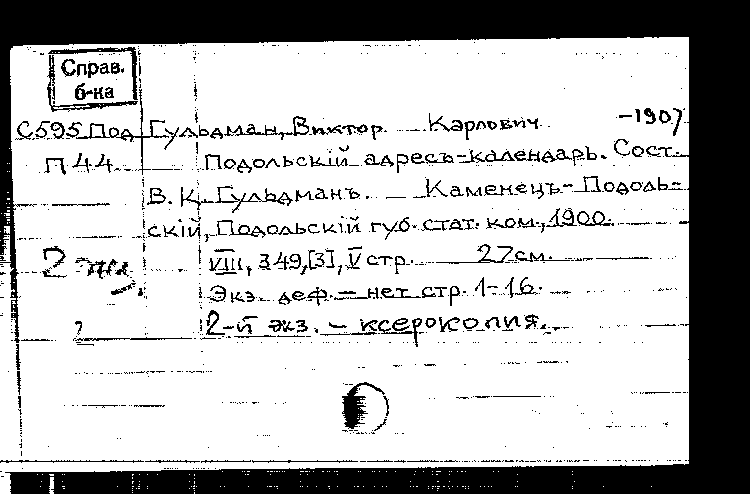 Справ.
б-ка
С595 Под Гульдман, Виктор Карлович -1907
П44 Подольскій адресъ-календарь. Сост.
В. К. Гульдманъ. Каменецъ-Подоль-
скій, Подольскій губ. стат. ком., 1900.
VIII, 349, [3], V стр. 27 см.
2 экз.
Экз. деф. - нет стр. 1-16.
2 2-й экз. - ксерокопия.